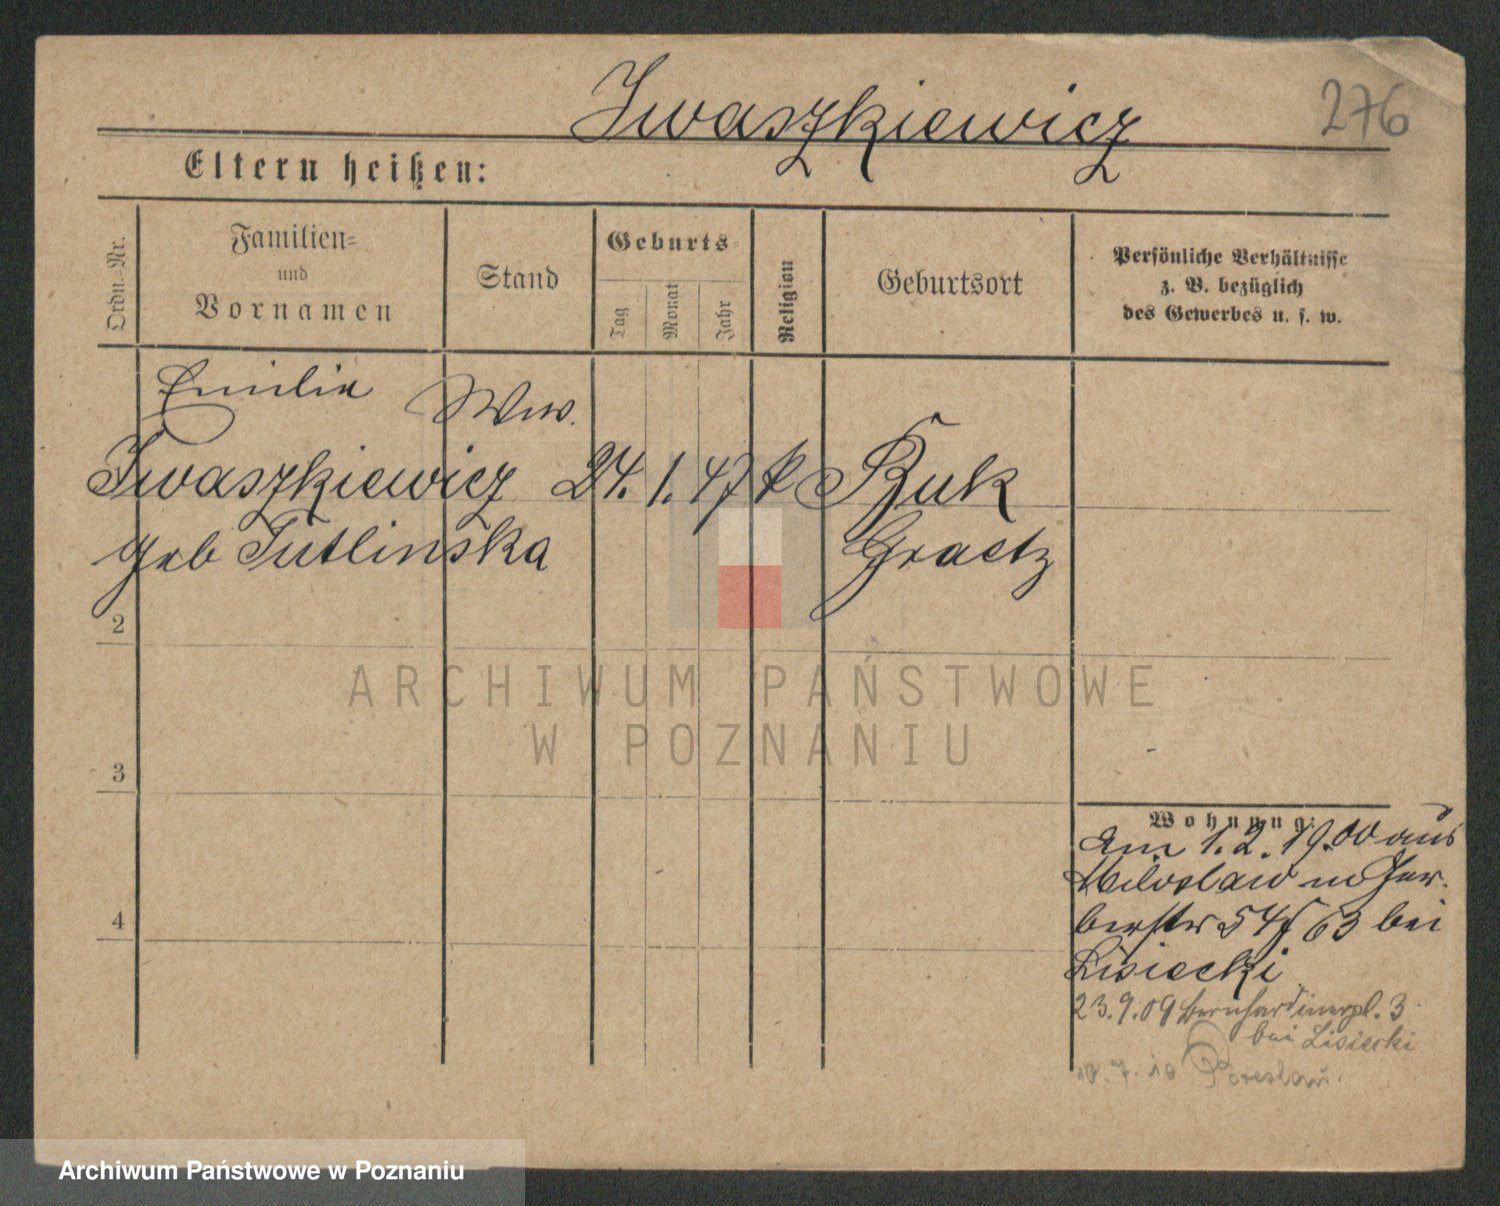 Iwaszkiewicz
276
Eltern heißen:
Ordn.-Nr.
Familien-
und
Vornamen
Stand
Geburts-
Tag
Monat
Jahr
Religion
Geburtsort
Persönliche Verhältnisse
z. B. bezüglich
des Gewerbes u. s. w.
Emilia Wwe.
Iwaszkiewicz 24. 1. 47 k Buk
geb Tutlinska Graetz
2
3
4
Wohnung:
Am 1.2.1900 aus
Miloslaw n Ger-
berstr 54/63 bei
Lisiecki
23.9.09 Bernhardinerpl. 3
bei Lisiecki
10.7.10
ARCHIWUM PAŃSTWOWE
W POZNANIU
Archiwum Państwowe w Poznaniu